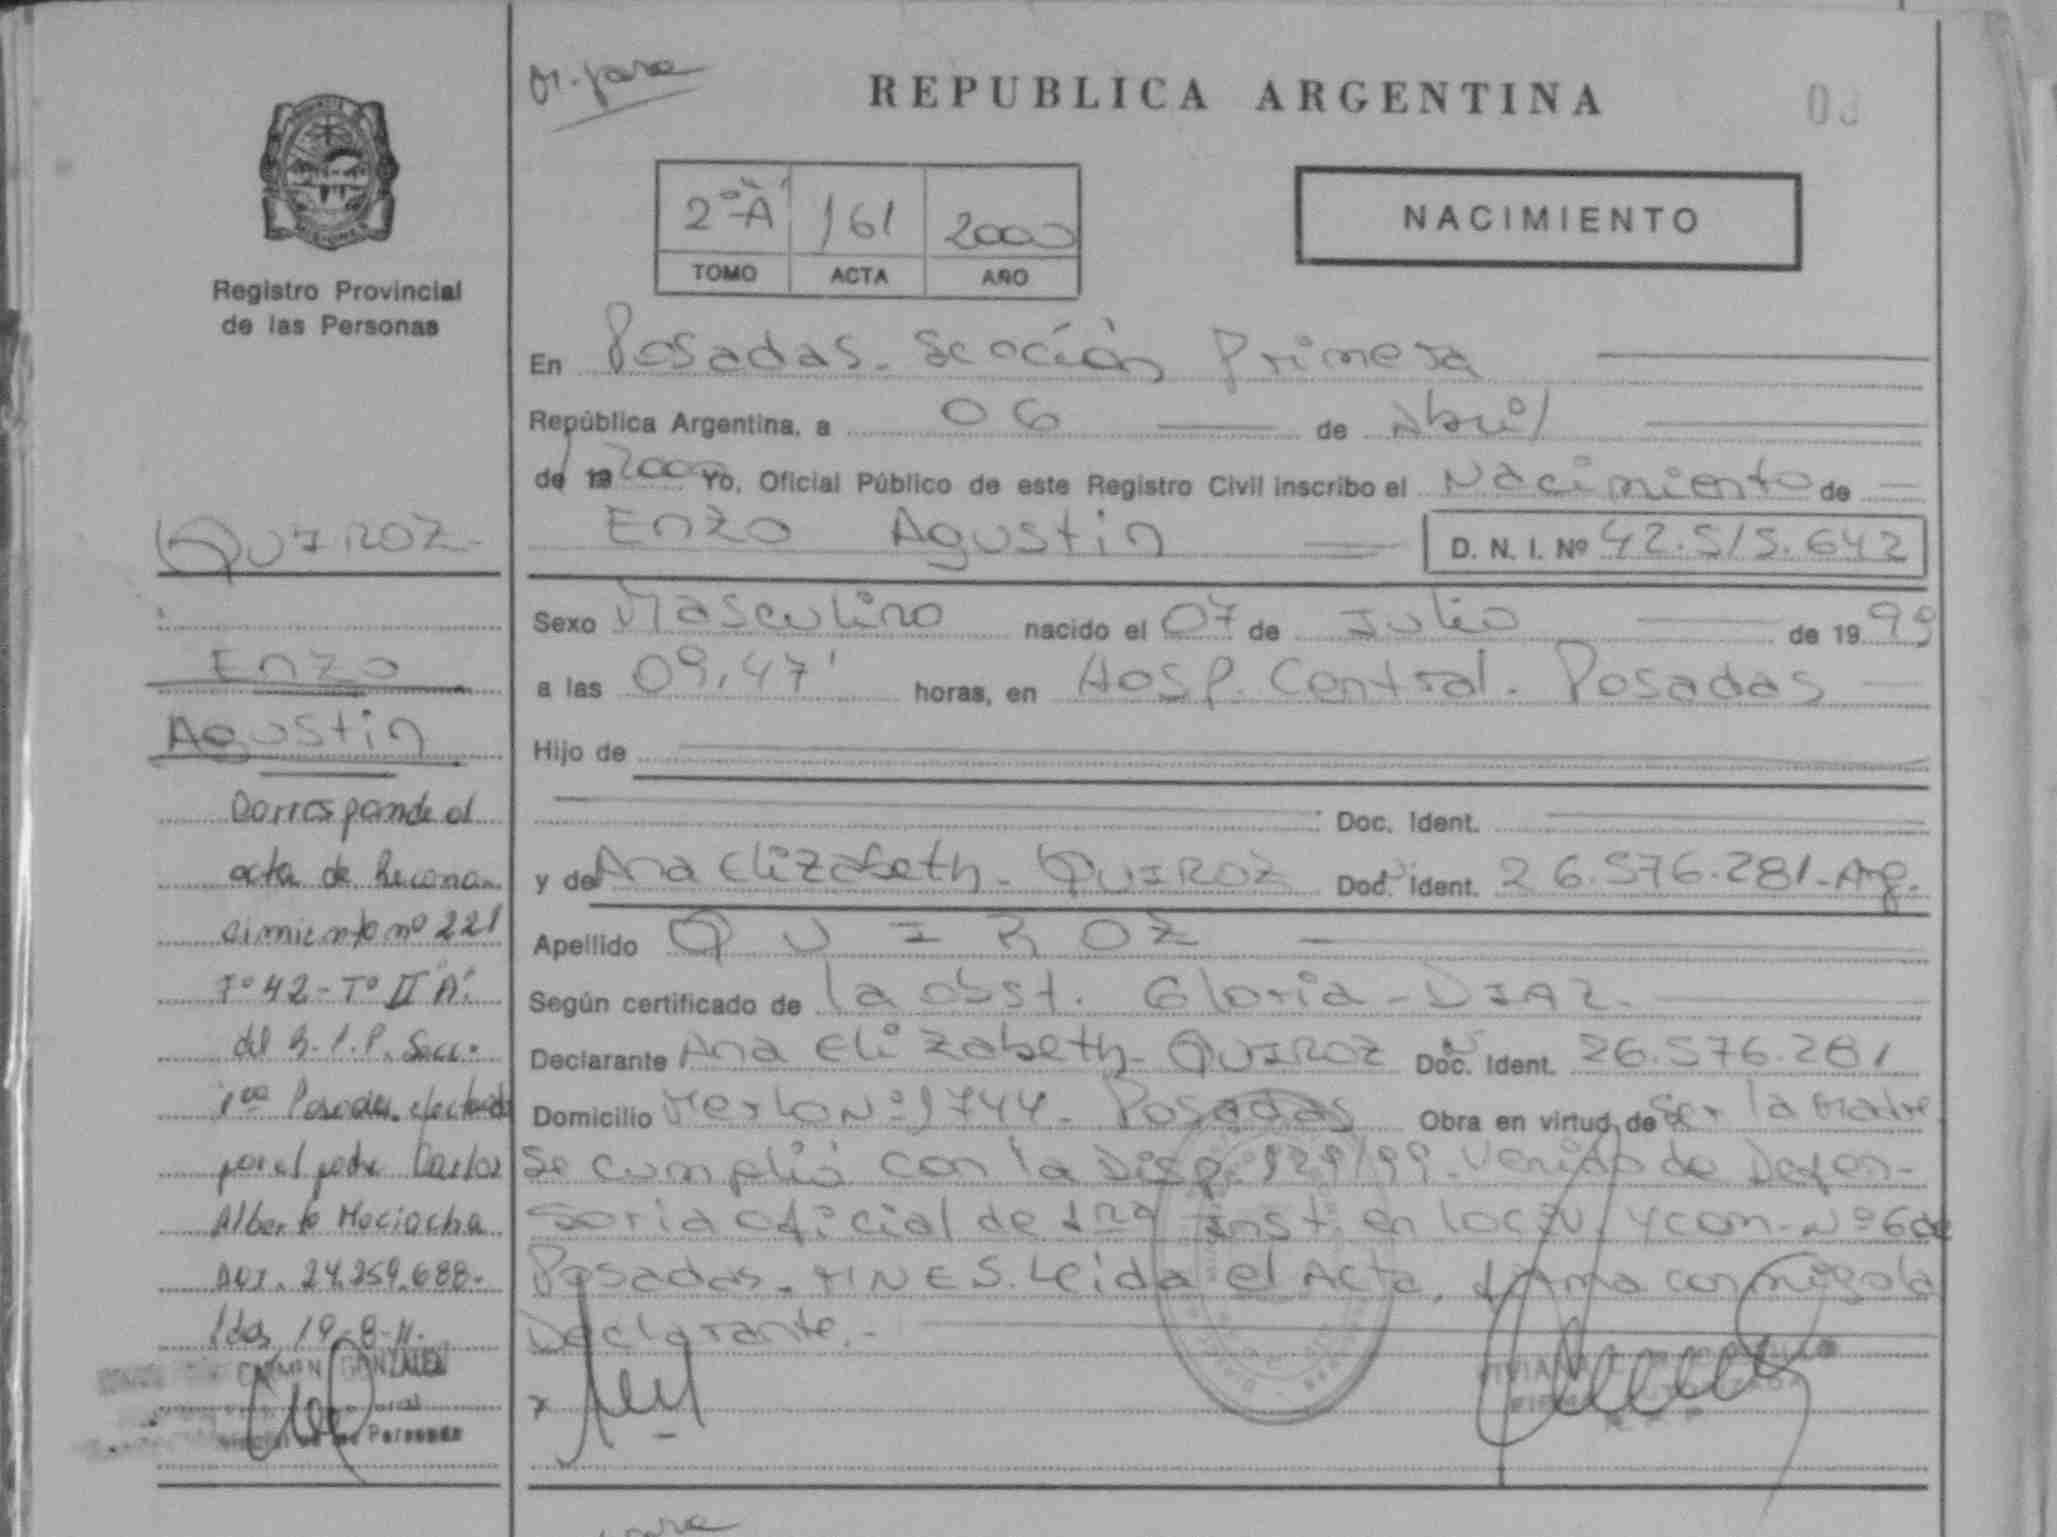 REPUBLICA ARGENTINA
2º "A" 161 2000
TOMO ACTA AÑO
NACIMIENTO
Registro Provincial
de las Personas
En Posadas. Sección Primera
República Argentina, a 06 de Abril
de 19 2000 Yo, Oficial Público de este Registro Civil inscribo el Nacimiento de
Enzo Agustin D. N. I. Nº 42.515.642
Sexo Masculino nacido el 07 de Julio de 19 99
a las 09,47' horas, en Hosp. Central. Posadas
Hijo de
Doc. Ident.
y de Ana Elizabeth - QUIROZ Doc. Ident. 26.576.281 - Arg.
Apellido QUIROZ
Según certificado de la obst. Gloria - DIAZ.
Declarante Ana Elizabeth - QUIROZ Doc. Ident. 26.576.281
Domicilio Merlo Nº 1744 - Posadas Obra en virtud de ser la Madre
Se cumplió con la Disp. 929/99. Venido de Defen-
soria oficial de 1ra Inst. en lo Civ. y com. Nº 6 de
Posadas. MNES. Leida el Acta, firma conmigo la
Declarante.-
QUIROZ-
Enzo
Agustin
Corresponde al
acta de Recono-
cimiento nº 221
Fº 42 - Tº II "A"
del R.P.P. Secc.
1ra Posadas. efectuado
por el padre Carlos
Alberto Mociocha
DNI. 24.259.688.
Pdas, 19-8-11.
CARMEN GONZALEZ